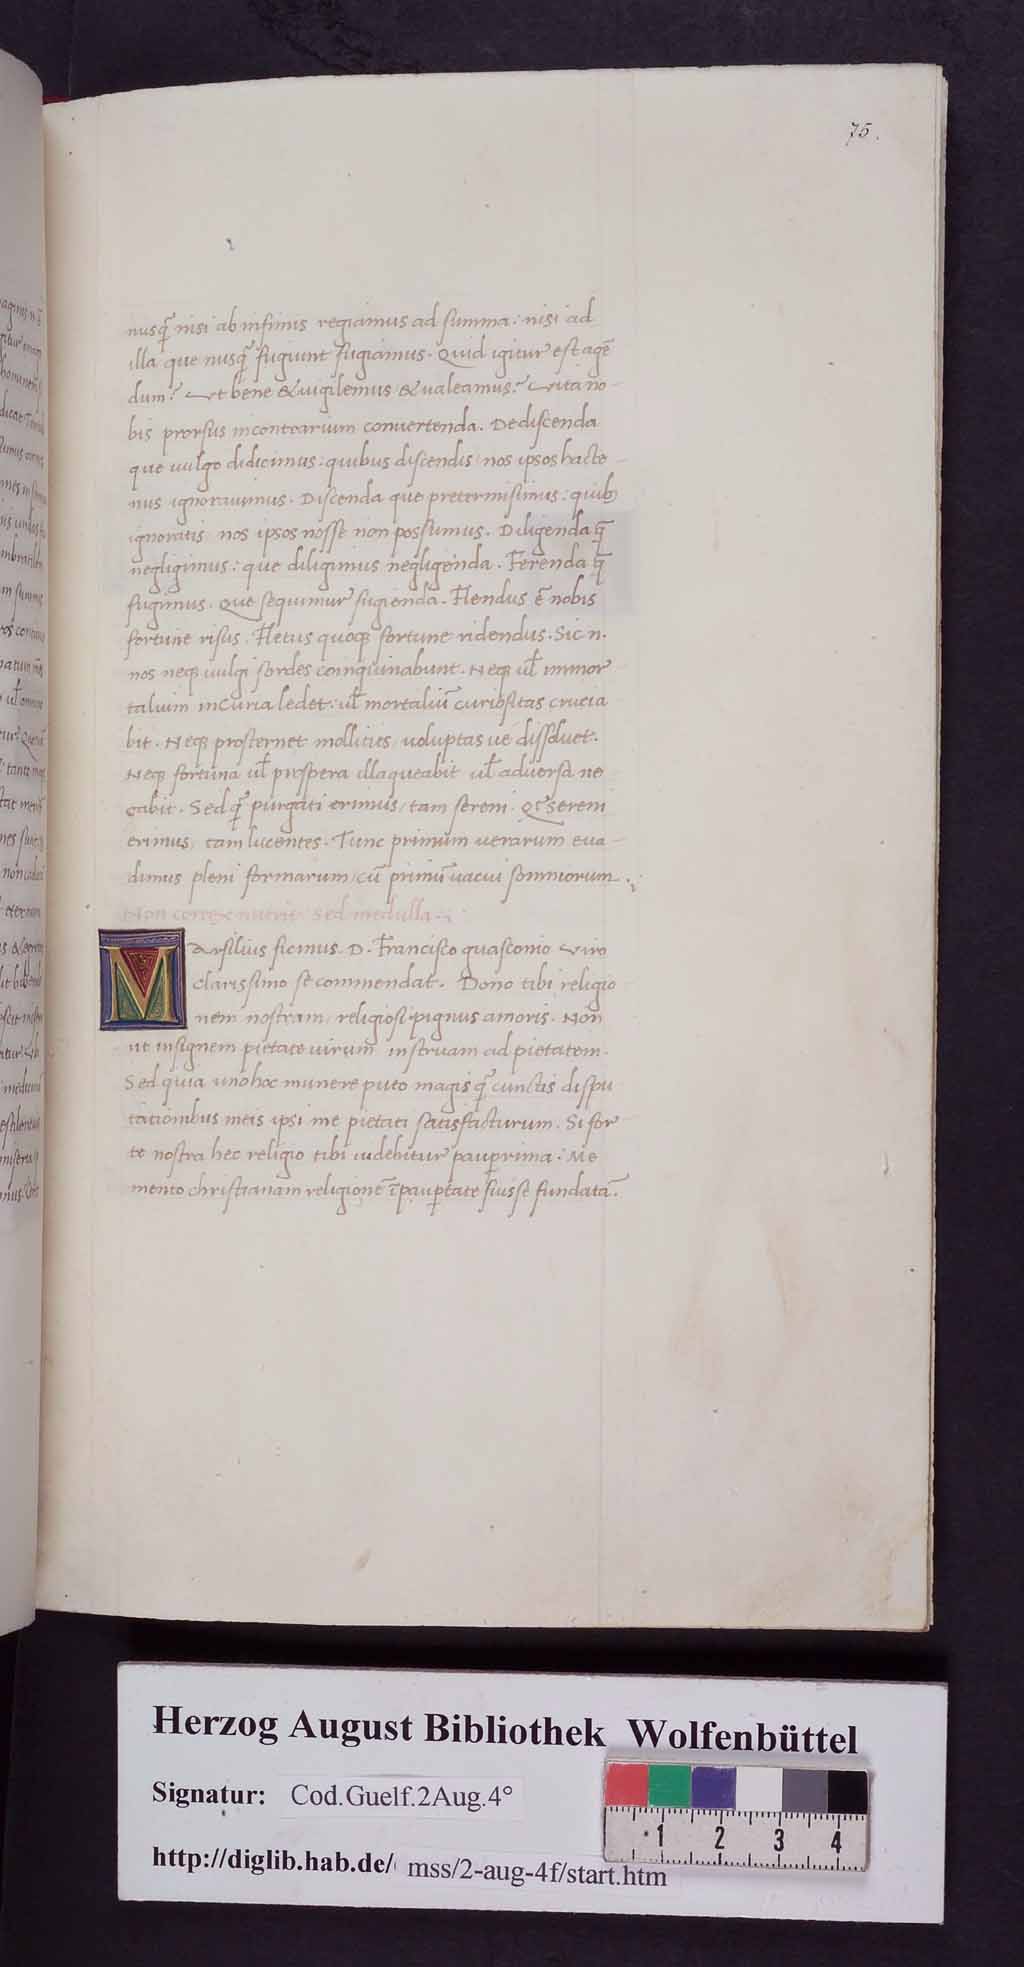 75.
nusq̃ nisi ab infimis regiamus ad summa: nisi ad
illa que nusq̃ fugiunt fugiamus. Quid igitur est agẽ
dum? Ut bene & uigilemus & ualeamus? Vita no-
bis prorsus in contrarium conuertenda. Dediscenda
que uulgo didicimus: quibus discendis nos ipsos hacte-
nus ignorauimus. Discenda que pretermisimus: quib;
ignoratis nos ipsos nosse non possumus. Diligenda q̃
negligimus: que diligimus negligenda. Ferenda q̃
fugimus. Que sequimur fugienda. Flendus ẽ nobis
fortune risus. Fletus quoq; fortune ridendus. Sic n.
nos neq; uulgi sordes coinquinabunt. Neq; ul̃ immor
talium incuria ledet: ul̃ mortaliũ curiositas crucia
bit. Neq; prosternet mollities, uoluptas ue dissoluet.
Neq; fortuna ul̃ prospera illaqueabit ul̃ aduersa ne
cabit. Sed q̃ purgati erimus, tam sereni. Q̃ sereni
erimus, tam lucentes. Tunc primum uerarum eua-
dimus pleni formarum, cũ primũ uacui somniorum.
Non cortex nutrit, sed medulla.
MArsilius ficinus. D. Francisco guasconio Viro
clarissimo se commendat. Dono tibi religio
nem nostram, religiosi pignus amoris. Non
ut insignem pietate uirum instruam ad pietatem.
Sed quia uno hoc munere puto magis q̃ cunctis dispu
tationibus meis ipsi me pietati satisfacturum. Si for
te nostra hec religio tibi uidebitur pauperrima: Me
mento christianam religionẽ ĩ paupertate fuisse fundatã.
Herzog August Bibliothek Wolfenbüttel
Signatur: Cod.Guelf.2Aug.4°
http://diglib.hab.de/ mss/2-aug-4f/start.htm
1 2 3 4